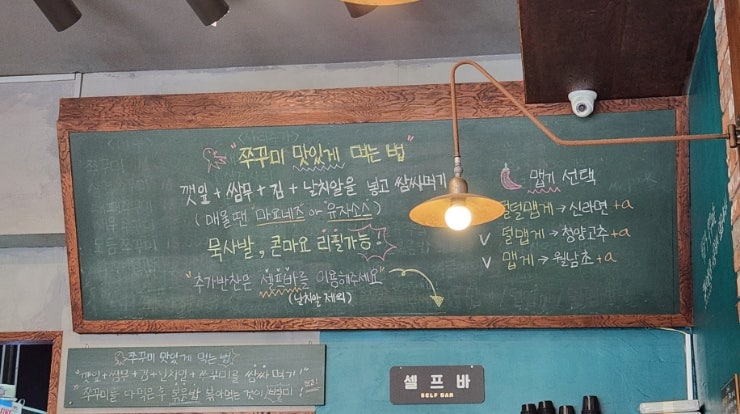 "쭈꾸미 맛있게 먹는 법"
깻잎+쌈무+김+날치알을 넣고 쌈싸먹기
(매울땐 "마요네즈" or "유자소스")
묵사발, 콘마요 리필가능!
"추가반찬은 셀프바를 이용해주세요"
(날치알 제외)
맵기 선택
덜맵게→신라면+a
✓ 덜맵게→청양고추+a
✓ 맵게→월남초+a
쭈꾸미 맛있게 먹는법?
"깻잎+쌈무+김+날치알+쭈꾸미를 쌈싸먹기!"
쭈꾸미를 다먹은 후 볶음밥 볶아먹는것이
셀프바
SELF BAR